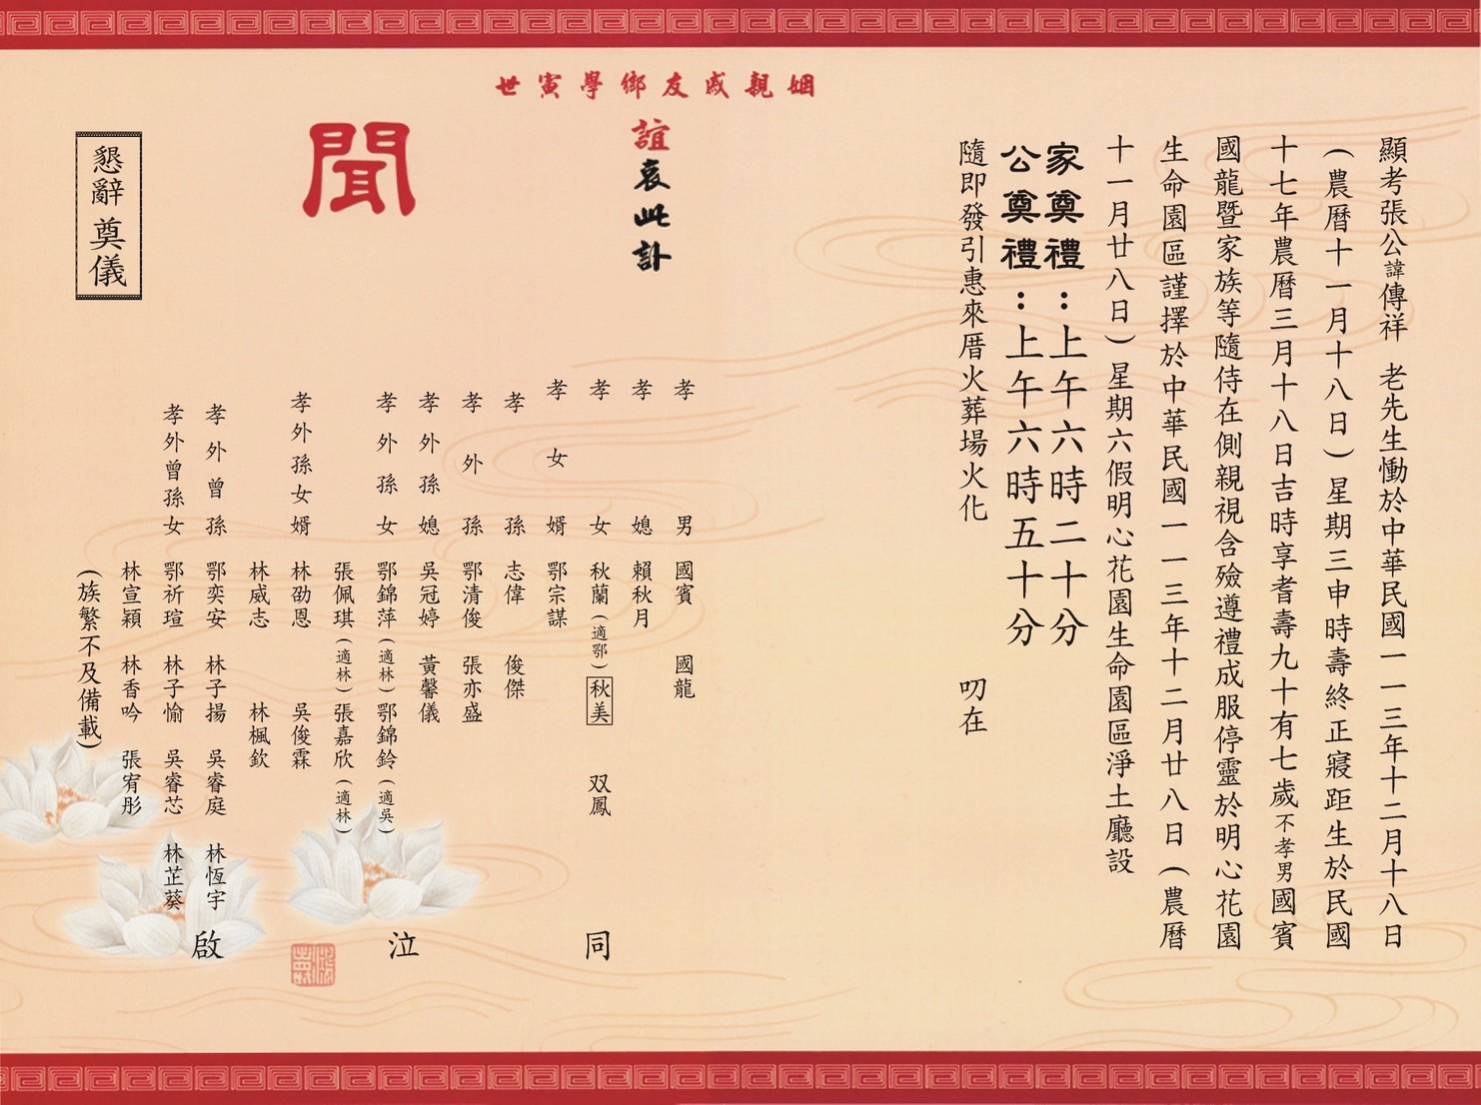 顯考張公諱傳祥 老先生慟於中華民國一一三年十二月十八日
(農曆十一月十八日)星期三申時壽終正寢距生於民國
十七年農曆三月十八日吉時享耆壽九十有七歲不孝男國賓
國龍暨家族等隨侍在側親視含殮遵禮成服停靈於明心花園
生命園區謹擇於中華民國一一三年十二月廿八日(農曆
十一月廿八日)星期六假明心花園生命園區淨土廳設
家奠禮:上午六時二十分
公奠禮:上午六時五十分
隨即發引惠來厝火葬場火化 叨在
姻親戚友鄉學寅世
誼哀此訃
聞
孝男 國賓 國龍
孝媳 賴秋月
孝女 秋蘭(適鄂) 秋美 双鳳
孝女婿 鄂宗謀
孝孫 志偉 俊傑
孝外孫 鄂清俊 張亦盛
孝外孫媳 吳冠婷 黃馨儀
孝外孫女 鄂錦萍(適林) 鄂錦鈴(適吳)
張佩琪(適林) 張嘉欣(適林)
孝外孫女婿 林劭恩 吳俊霖
林威志 林楓欽
孝外曾孫 鄂奕安 林子揚 吳睿庭 林恆宇
孝外曾孫女 鄂祈瑄 林子愉 吳睿芯 林芷葵
林宣穎 林香吟 張宥彤
(族繁不及備載)
同泣啟
懇辭 奠儀